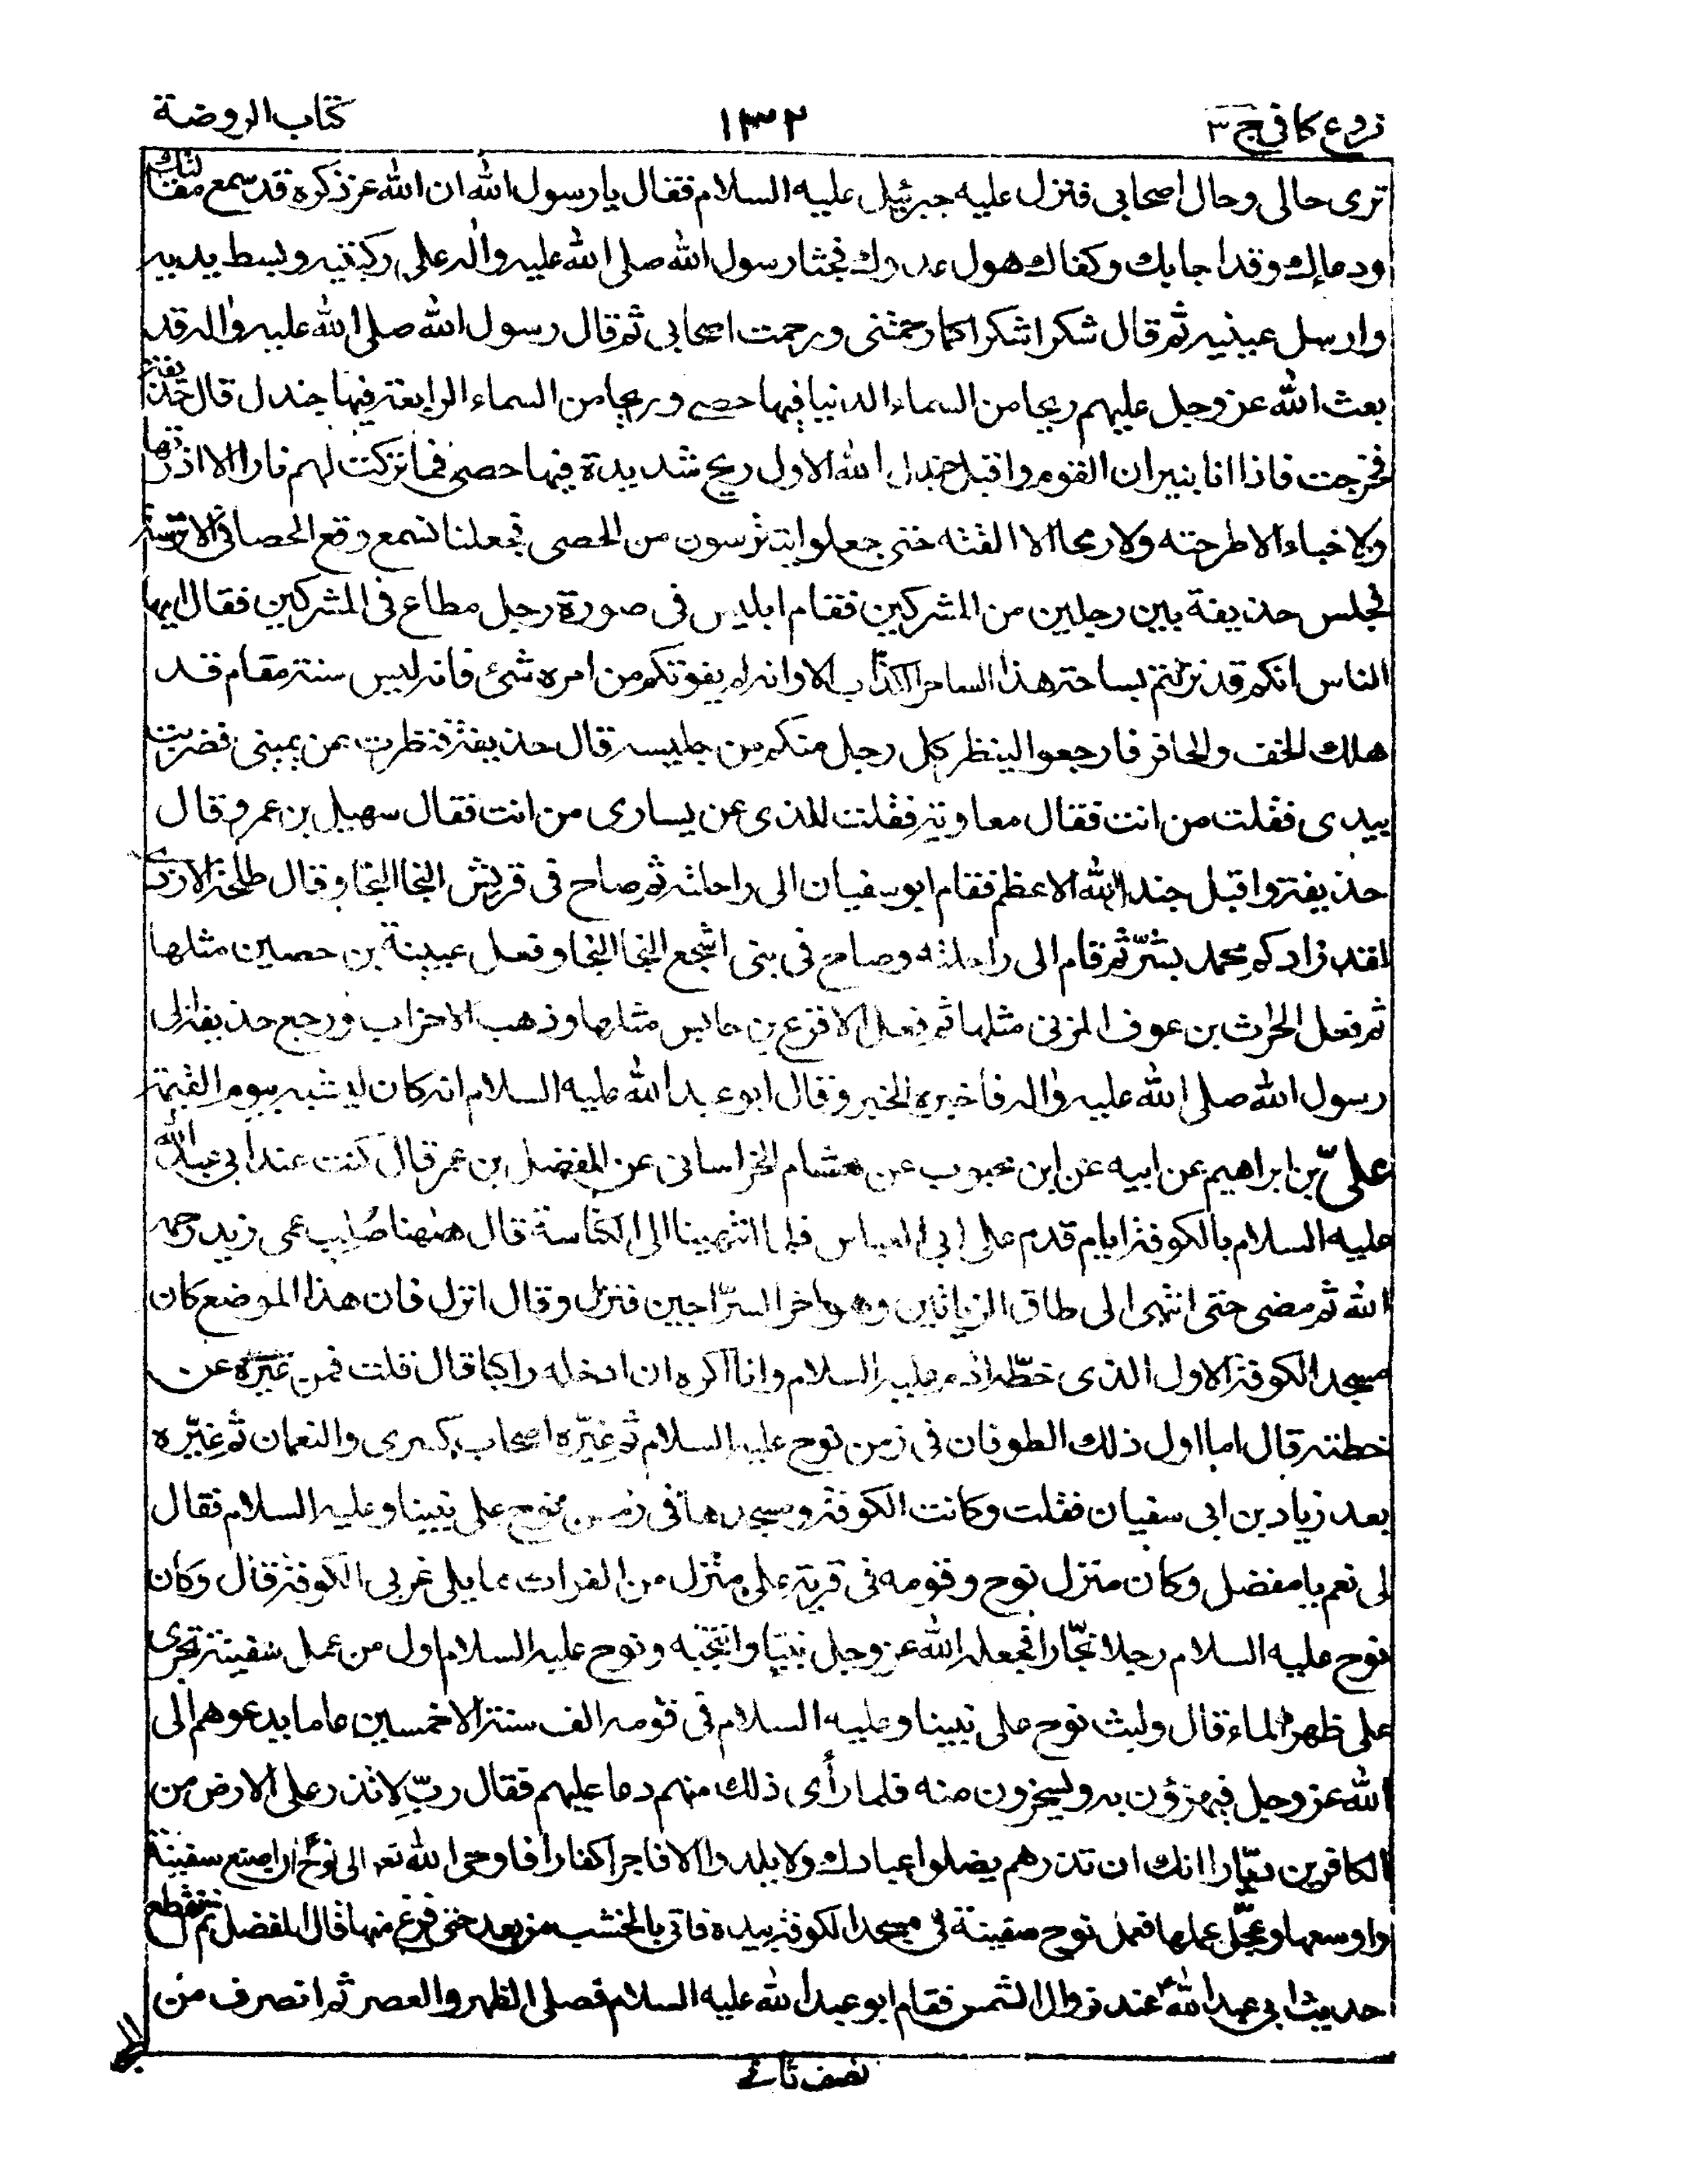 فروع كافي ج ٣
١٣٢
كتاب الروضة
ترى حالى وحال اصحابى فنزل عليه جبرئيل عليه السلام فقال يا رسول الله ان الله عز ذكره قد سمع مقالتك
ودعاءك وقد اجابك وكفاك هول عدوك فجثا رسول الله صلى الله عليه واله على ركبتيه وبسط يديه
وارسل عينيه ثم قال شكرا شكرا كما رحمتنى ورحمت اصحابى ثم قال رسول الله صلى الله عليه واله قد
بعث الله عز وجل عليهم ريحا من السماء الدنيا فيها حصى وريحا من السماء الرابعة فيها جندل قال حذيفة
فخرجت فاذا انا بنيران القوم واقبل جند الله الاول ريح شديدة فيها حصى فما تركت لهم نارا الا اذرتها
ولا خباء الا طرحته ولا رمحا الا القته حتى جعلوا يتترسون من الحصى فجعلنا نسمع وقع الحصا فى الاترسة
فجلس حذيفة بين رجلين من المشركين فقام ابليس فى صورة رجل مطاع فى المشركين فقال ايها
الناس انكم قد نزلتم بساحة هذا الساحر الكذاب الا وانه لم يفوتكم من امره شئ فانه ليس سنة مقام قد
هلك الخف والحافر فارجعوا لينظر كل رجل منكم من جليسه قال حذيفة فنظرت عن يمينى فضربت
بيدى فقلت من انت فقال معاوية فقلت للذى عن يسارى من انت فقال سهيل بن عمرو قال
حذيفة واقبل جند الله الاعظم فقام ابو سفيان الى راحلته ثم صاح فى قريش النجا النجا وقال طلحة الازدى
لقد زادكم محمد بشرّ ثم قام الى راحلته وصاح فى بنى اشجع النجا النجا وفعل عيينة بن حصين مثلها
ثم فعل الحرث بن عوف المزنى مثلها ثم فعل الاقرع بن حابس مثلها وذهب الاحزاب ورجع حذيفة الى
رسول الله صلى الله عليه واله فاخبره الخبر وقال ابو عبد الله عليه السلام انه كان ليشبه بيوم القيمة
علىّ بن ابراهيم عن ابيه عن ابن محبوب عن هشام الخراسانى عن المفضل بن عمر قال كنت عند ابى عبد الله
عليه السلام بالكوفة ايام قدم على ابى العباس فلما انتهينا الى الكناسة قال ههنا صُلِب عمى زيد رحمه
الله ثم مضى حتى انتهى الى طاق الزياتين وهو اخر السرّاجين فنزل وقال انزل فان هذا الموضع كان
مسجد الكوفة الاول الذى خطّه ادم عليه السلام وانا اكره ان ادخله راكبا قال قلت فمن غيّره عن
خطته قال اما اول ذلك الطوفان فى زمن نوح عليه السلام ثم غيّره اصحاب كسرى والنعمان ثم غيّره
بعد زياد بن ابى سفيان فقلت وكانت الكوفة ومسجدها فى زمن نوح على نبينا وعليه السلام فقال
لى نعم يا مفضل وكان منزل نوح وقومه فى قرية على منزل من الفرات مما يلى غربى الكوفة قال وكان
نوح عليه السلام رجلا نجّارا فجعله الله عز وجل نبيّا وانتجبه ونوح عليه السلام اول من عمل سفينة تجرى
على ظهر الماء قال ولبث نوح على نبينا وعليه السلام فى قومه الف سنة الا خمسين عاما يدعوهم الى
الله عز وجل فيهزؤن به ويسخرون منه فلما رأى ذلك منهم دعا عليهم فقال ربّ لا تذر على الارض من
الكافرين ديّارا انك ان تذرهم يضلوا عبادك ولا يلدوا الا فاجرا كفارا فاوحى الله تعه الى نوح ان اصنع سفينة
واوسعها وعجّل عملها فعمل نوح سفينة فى مسجد الكوفة بيده فاتى بالخشب من بعد حتى فرغ منها قال المفضل ثم انقطع
حديث ابى عبد الله ع عند زوال الشمس فقام ابو عبد الله عليه السلام فصلى الظهر والعصر ثم انصرف من
نصف ثانى